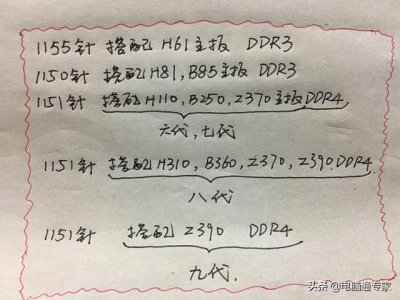 1155针 搭配 H61主板 DDR3
1150针 搭配H81,B85主板 DDR3
1151针 搭配H110,B250,Z370主板,DDR4,
六代,七代
1151针 搭配H310,B360,Z370,Z390,DDR4
八代
1151针 搭配 Z390 DDR4
九代.
头条@电脑通专家